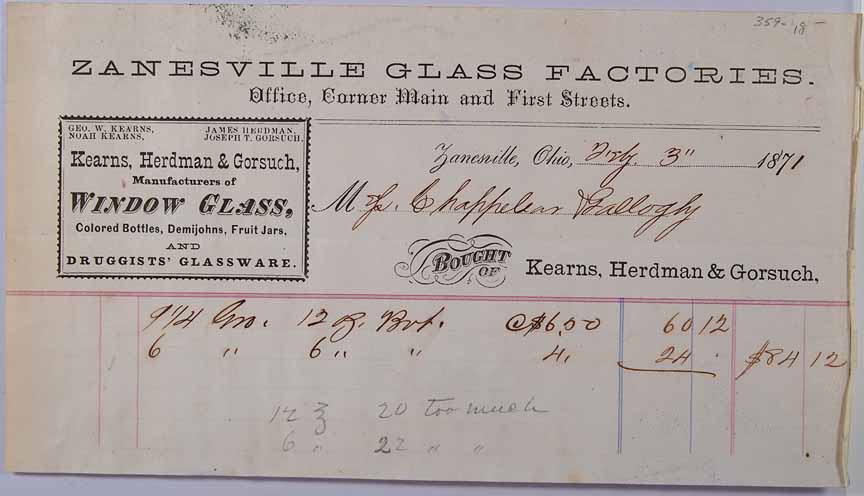 359-18-
ZANESVILLE GLASS FACTORIES.
Office, Corner Main and First Streets.
GEO. W. KEARNS, JAMES HERDMAN,
NOAH KEARNS, JOSEPH T. GORSUCH.
Kearns, Herdman & Gorsuch,
Manufacturers of
WINDOW GLASS,
Colored Bottles, Demijohns, Fruit Jars,
AND
DRUGGISTS' GLASSWARE.
Zanesville, Ohio, 3" 1871
M Chappelear & Gallogly
BOUGHT OF Kearns, Herdman & Gorsuch,
9 1/4 Gro. 12 oz. Bot. @ $6.50 60 12
6 " 6 " " 4. 24 $84 12
12 ʒ 20 too much
6 " 22 " "